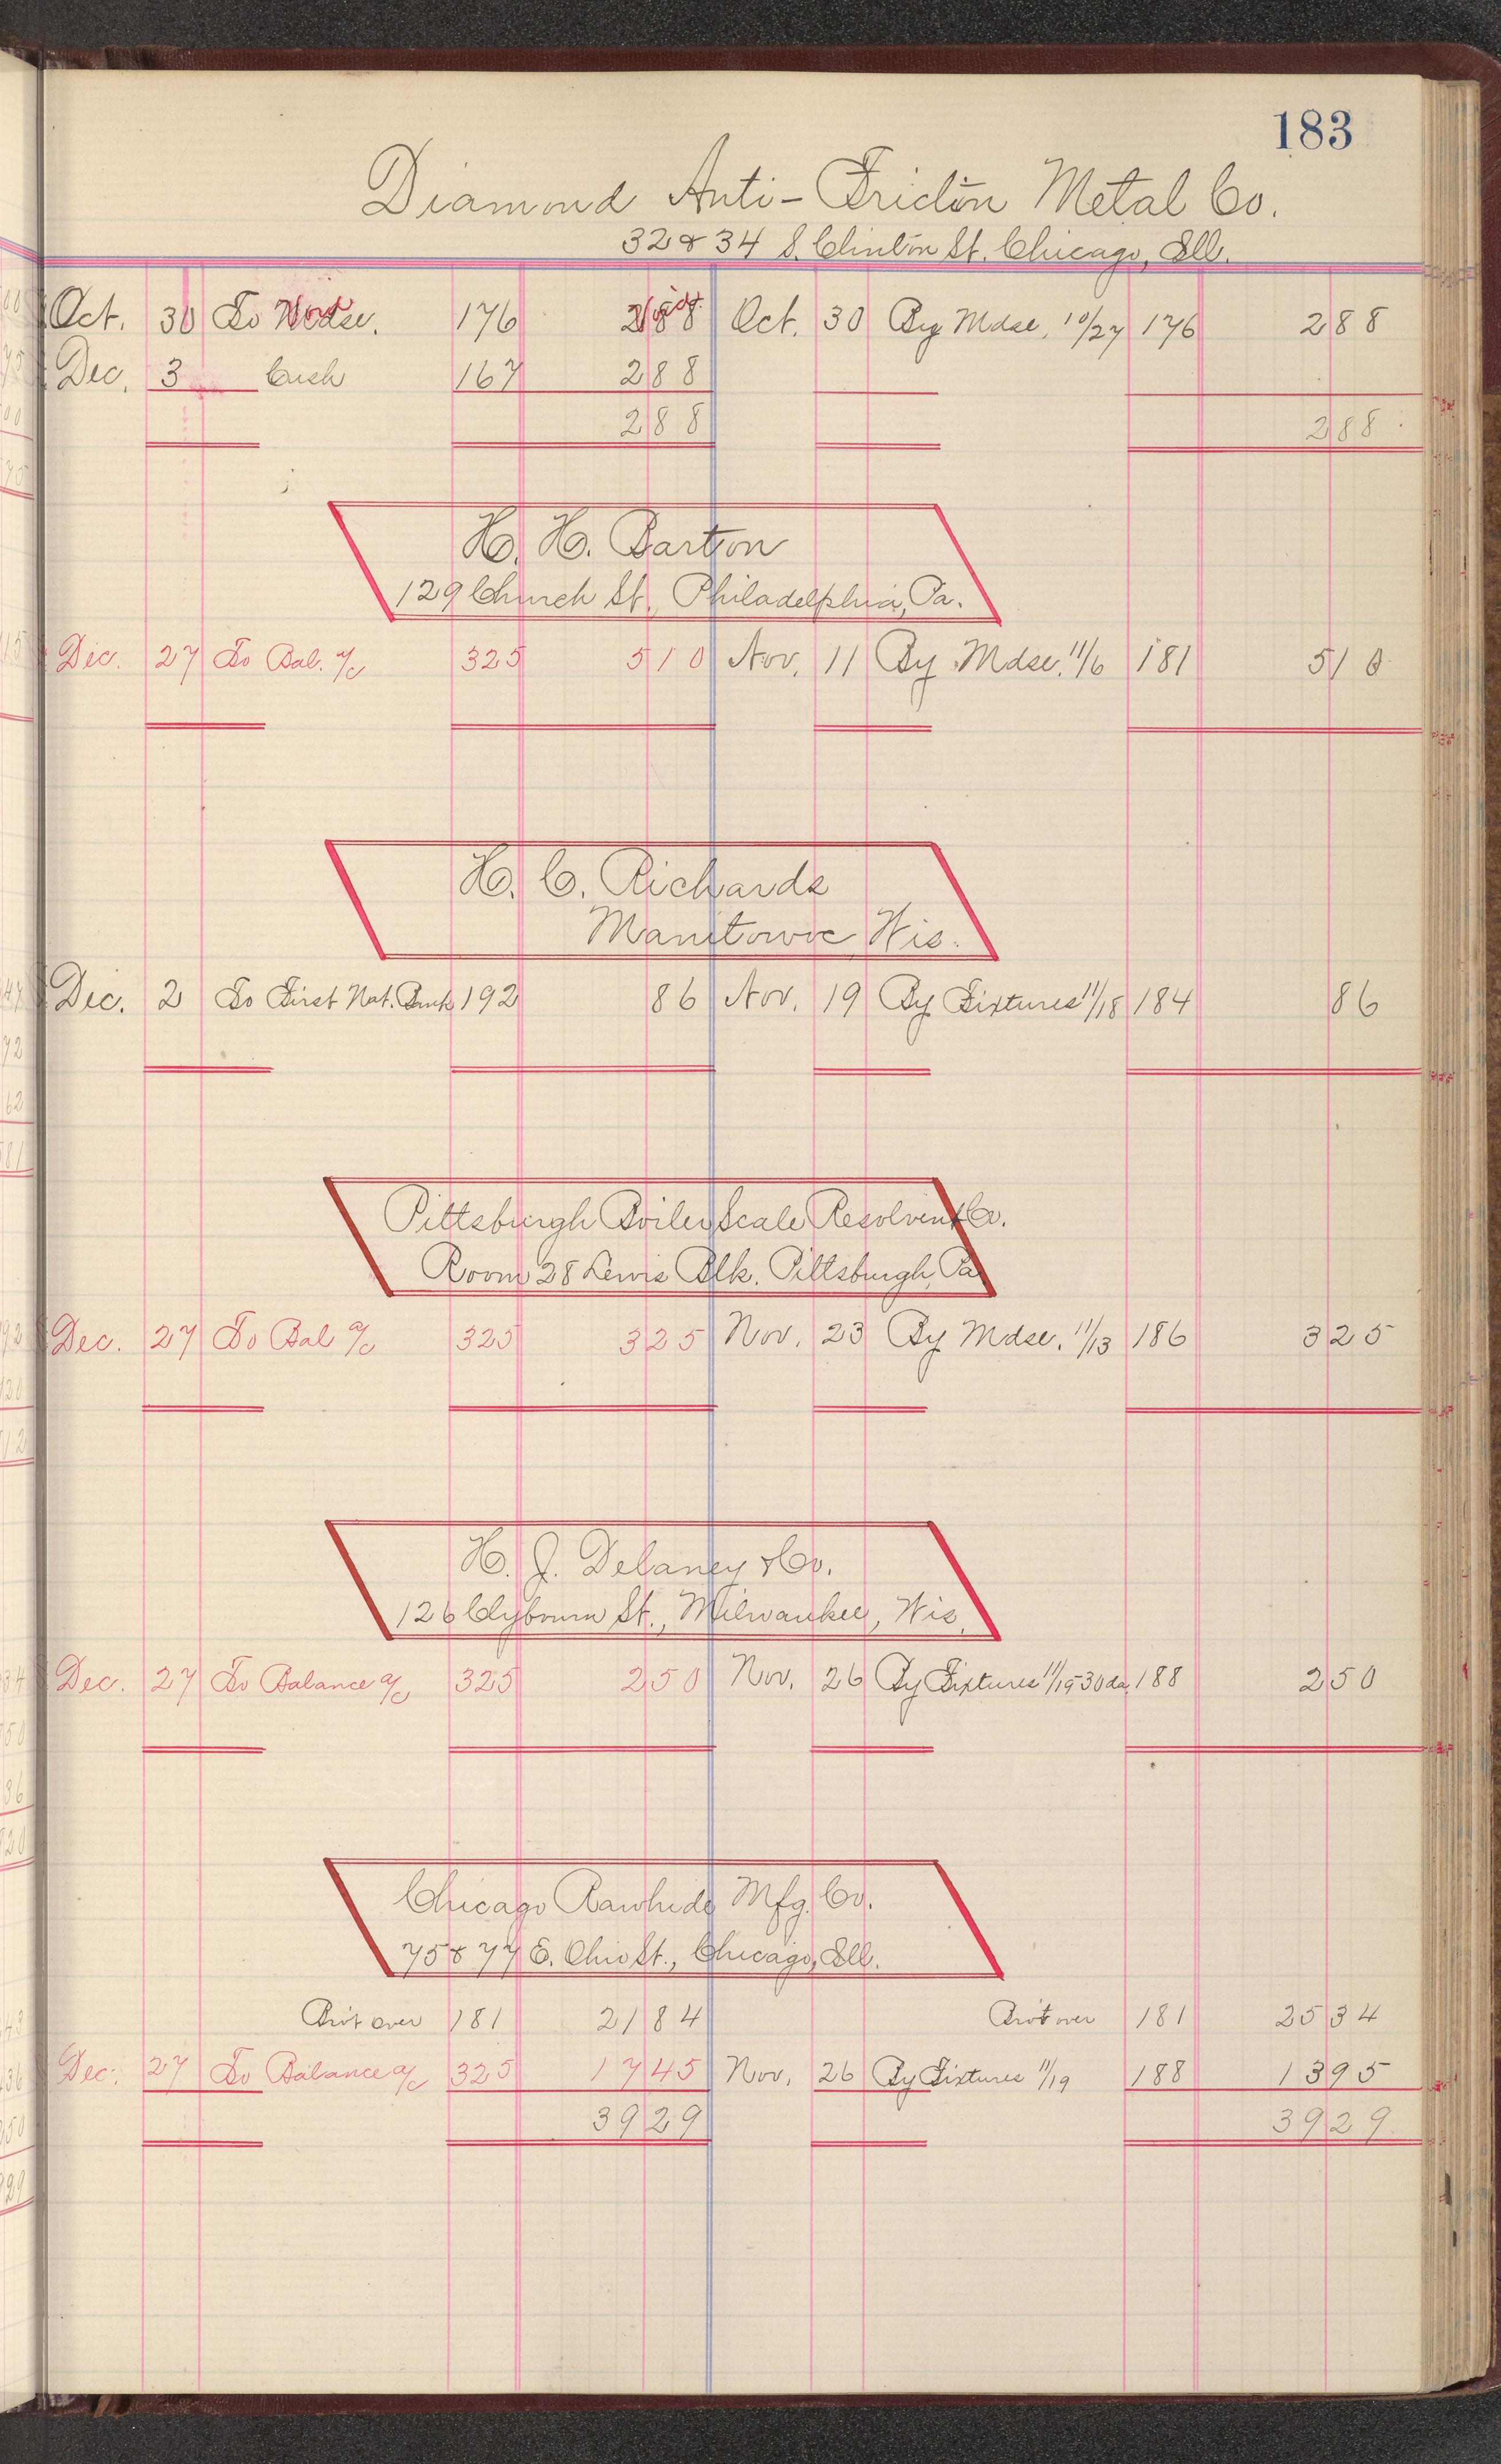 183
Diamond Anti-Friction Metal Co.
32 & 34 S. Clinton St. Chicago, Ill.
Oct. 30 To Mdse. Void 176 288 Void Oct. 30 By Mdse. 10/27 176 288
Dec. 3 Cash 167 288
288 288
H. H. Barton
129 Church St., Philadelphia, Pa.
Dec. 27 To Bal. a/c 325 510 Nov. 11 By Mdse. 11/6 181 510
H. C. Richards
Manitowoc Wis.
Dec. 2 To First Nat. Bank 192 86 Nov. 19 By Fixtures 11/18 184 86
Pittsburgh Boiler Scale Resolvent Co.
Room 28 Lewis Blk. Pittsburgh, Pa.
Dec. 27 To Bal a/c 325 325 Nov. 23 By Mdse. 11/13 186 325
H. J. Delaney & Co.
126 Clybourn St., Milwaukee, Wis.
Dec. 27 To Balance a/c 325 250 Nov. 26 By Fixtures 11/19-30 da. 188 250
Chicago Rawhide Mfg. Co.
75 & 77 E. Ohio St., Chicago, Ill.
Bro't over 181 2184 Bro't over 181 2534
Dec. 27 To Balance a/c 325 1745 Nov. 26 By Fixtures 11/19 188 1395
3929 3929